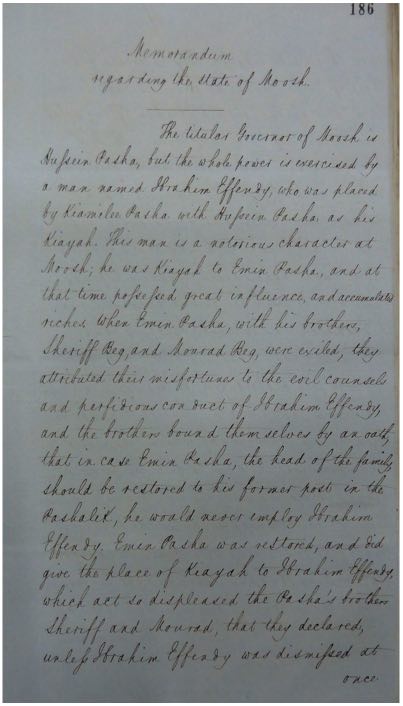 186
Memorandum
regarding the state of Moosh.
The titular Governor of Moosh is
Hussein Pasha, but the whole power is exercised by
a man named Ibrahim Effendy, who was placed
by Kiamilee Pasha with Hussein Pasha as his
Kiayah. This man is a notorious character at
Moosh; he was Kiayah to Emin Pasha, and at
that time possessed great influence, and accumulated
riches When Emin Pasha, with his brothers,
Sheriff Beg, and Mourad Beg, were exiled, they
attributed their misfortunes to the evil counsels
and perfidious conduct of Ibrahim Effendy,
and the brothers bound themselves by an oath,
that in case Emin Pasha, the head of the family,
should be restored to his former post in the
Pashalik, he would never employ Ibrahim
Effendy. Emin Pasha was restored, and did
give the place of Kiayah to Ibrahim Effendy,
which act so displeased the Pasha's brothers
Sheriff and Mourad, that they declared,
unless Ibrahim Effendy was dismissed at
once